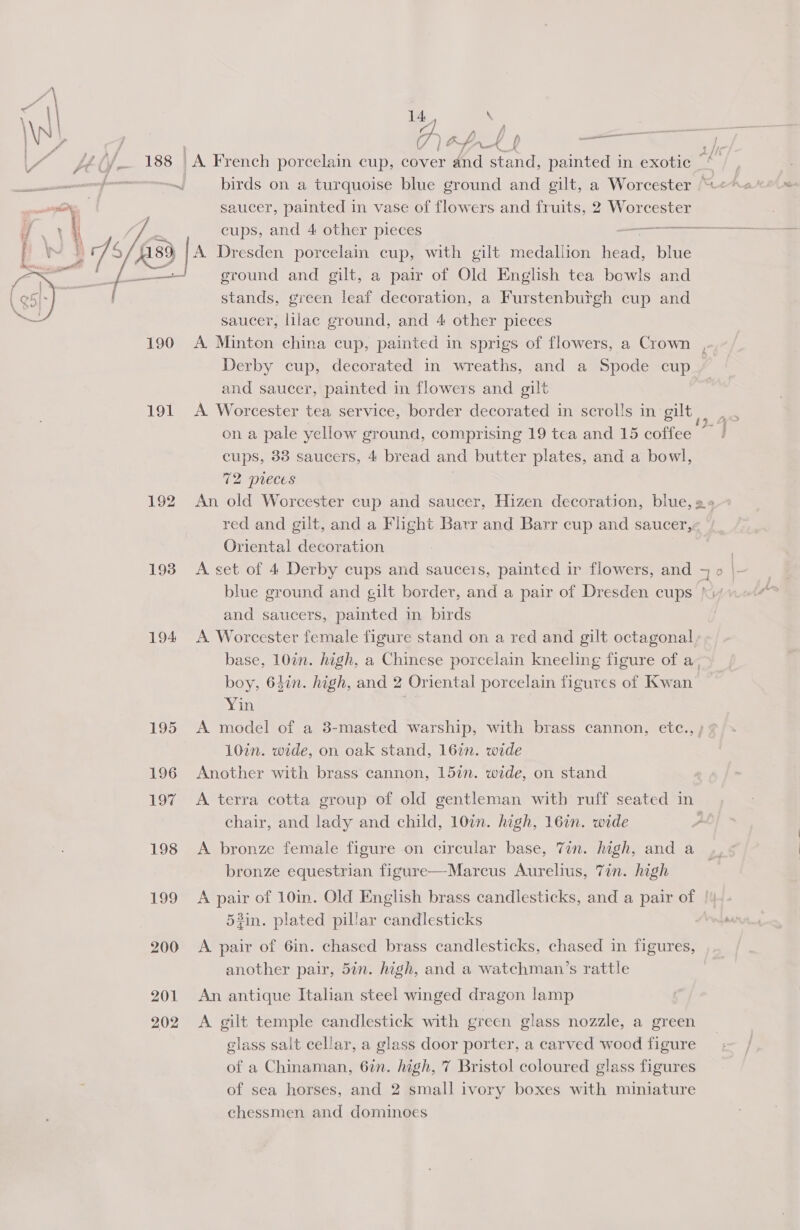 14
188 A French porcelain cup, cover and stand, painted in exotic
birds on a turquoise blue ground and gilt, a Worcester
saucer, painted in vase of flowers and fruits, 2 Worcester
cups, and 4 other pieces
189 A Dresden porcelain cup, with gilt medallion head, blue
ground and gilt, a pair of Old English tea bowls and
stands, green leaf decoration, a Furstenburgh cup and
saucer, lilac ground, and 4 other pieces
190 A Minton china cup, painted in sprigs of flowers, a Crown
Derby cup, decorated in wreaths, and a Spode cup
and saucer, painted in flowers and gilt
191 A Worcester tea service, border decorated in scrolls in gilt
on a pale yellow ground, comprising 19 tea and 15 coffee
cups, 33 saucers, 4 bread and butter plates, and a bowl,
72 pieces
192 An old Worcester cup and saucer, Hizen decoration, blue,
red and gilt, and a Flight Barr and Barr cup and saucer,
Oriental decoration
193 A set of 4 Derby cups and saucers, painted in flowers, and
blue ground and gilt border, and a pair of Dresden cups
and saucers, painted in birds
194 A Worcester female figure stand on a red and gilt octagonal
base, 10in. high, a Chinese porcelain kneeling figure of a
boy, 6½in. high, and 2 Oriental porcelain figures of Kwan
Yin
195 A model of a 3-masted warship, with brass cannon, etc.,
10in. wide, on oak stand, 16in. wide
196 Another with brass cannon, 15in. wide, on stand
197 A terra cotta group of old gentleman with ruff seated in
chair, and lady and child, 10in. high, 16in. wide
198 A bronze female figure on circular base, 7in. high, and a
bronze equestrian figure—Marcus Aurelius, 7in. high
199 A pair of 10in. Old English brass candlesticks, and a pair of
5¾in. plated pillar candlesticks
200 A pair of 6in. chased brass candlesticks, chased in figures,
another pair, 5in. high, and a watchman's rattle
201 An antique Italian steel winged dragon lamp
202 A gilt temple candlestick with green glass nozzle, a green
glass salt cellar, a glass door porter, a carved wood figure
of a Chinaman, 6in. high, 7 Bristol coloured glass figures
of sea horses, and 2 small ivory boxes with miniature
chessmen and dominoes